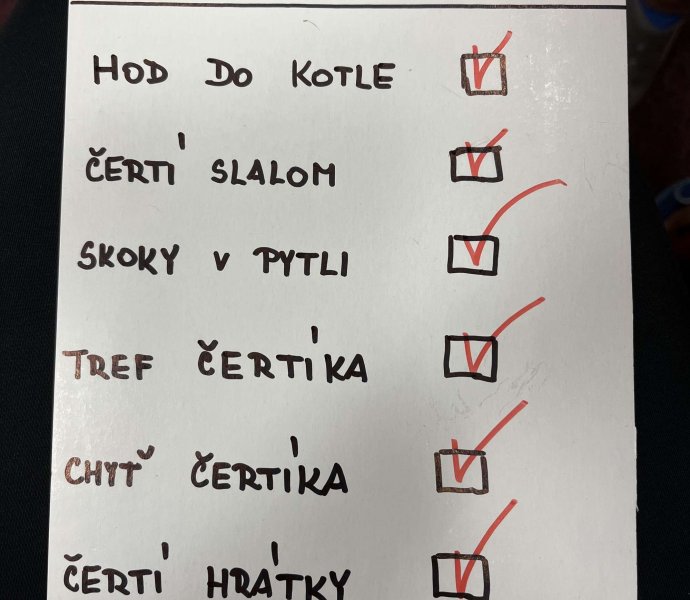 HOD DO KOTLE
ČERTÍ SLALOM
SKOKY V PYTLI
TREF ČERTÍKA
CHYŤ ČERTÍKA
ČERTÍ HRÁTKY